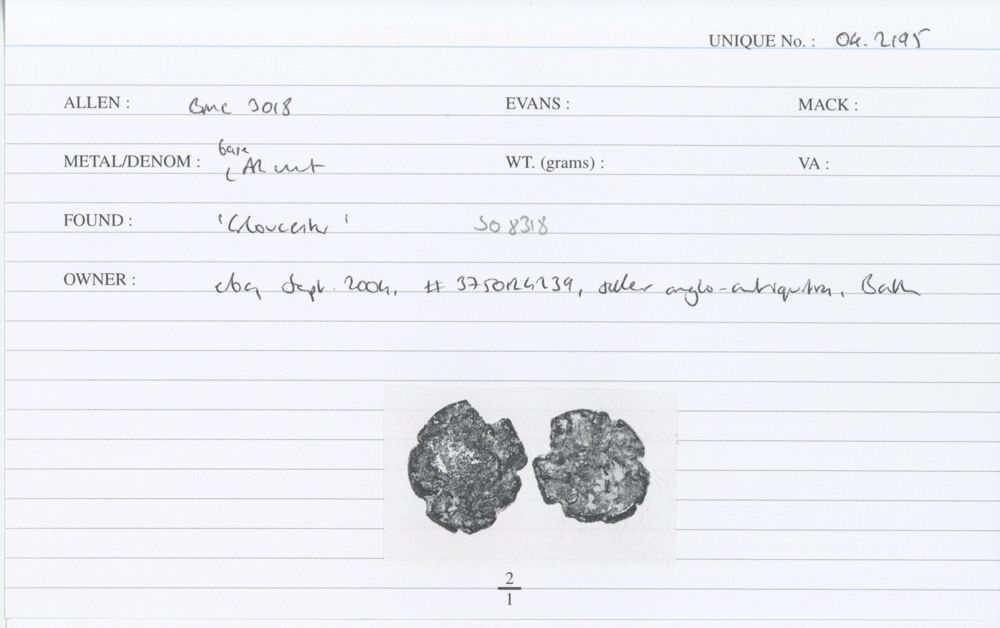 UNIQUE No. : 04.2195
ALLEN : BMC 3018 EVANS : MACK :
METAL/DENOM : base AR unit WT. (grams) : VA :
FOUND : 'Gloucester' SO 8318
OWNER : ebay Sept. 2004, # 3750124239, seller anglo-antiquities, Bath
2
1